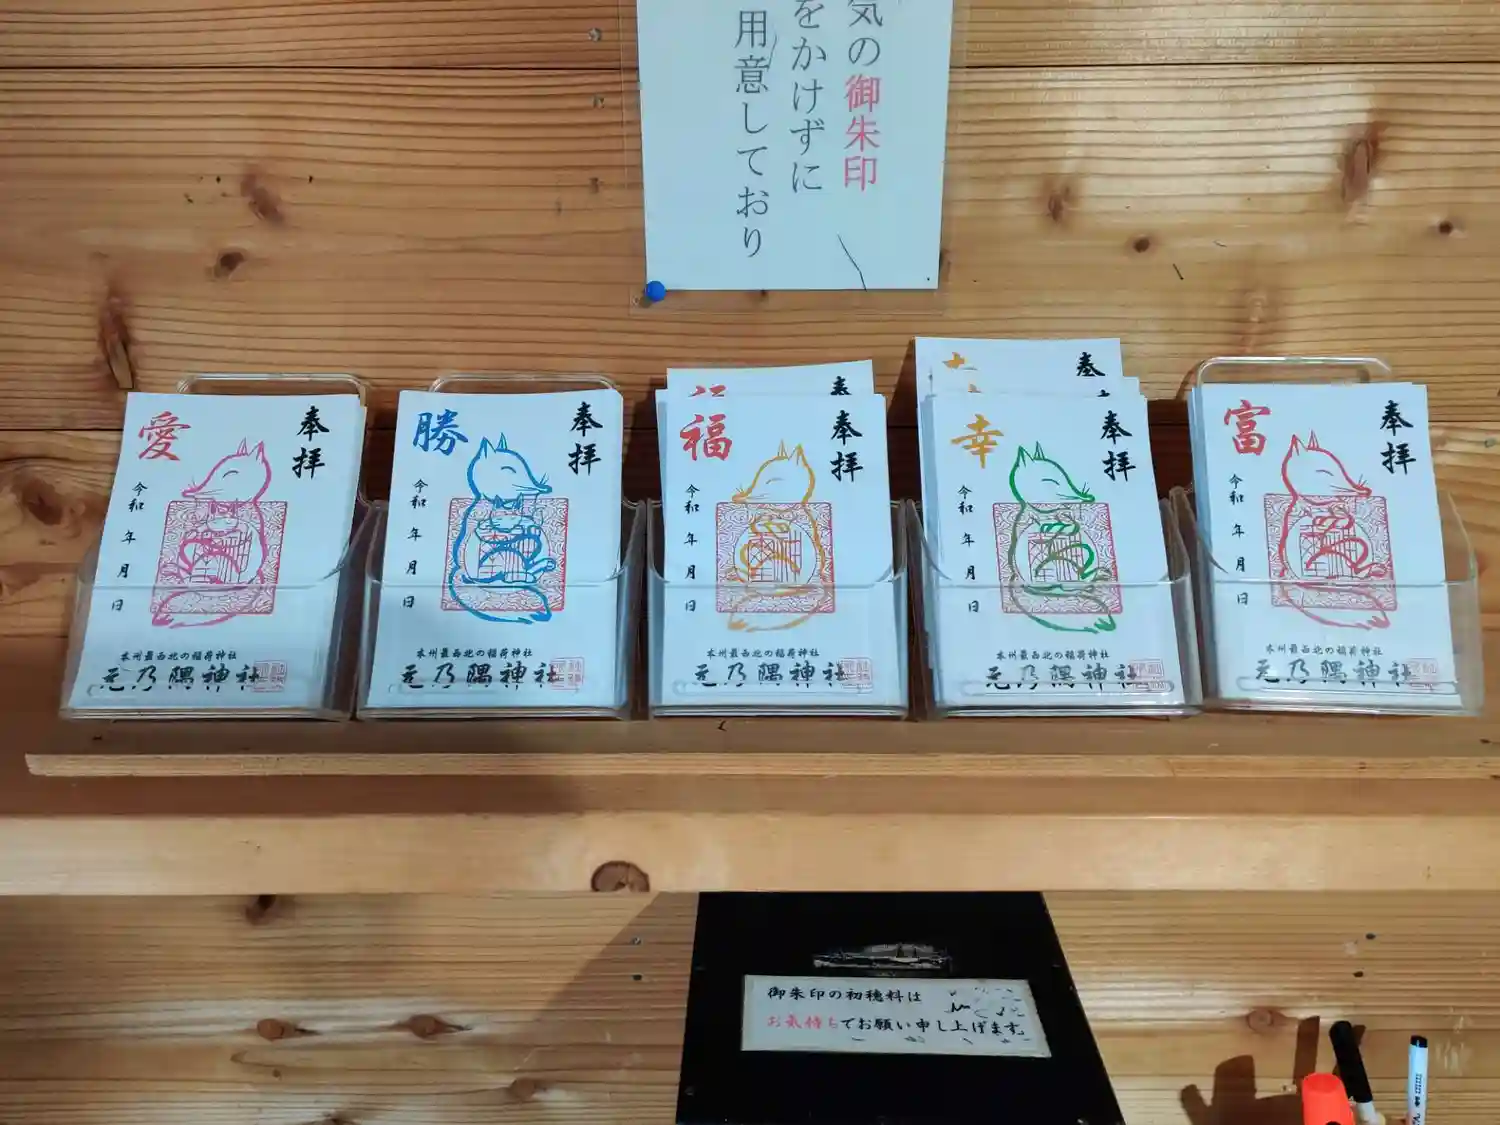 気の御朱印
をかけずに
用意しており
愛
奉拝
令和 年 月 日
本州最西北の稲荷神社
元乃隅神社
勝
奉拝
令和 年 月 日
本州最西北の稲荷神社
元乃隅神社
福
奉拝
令和 年 月 日
本州最西北の稲荷神社
元乃隅神社
幸
奉拝
令和 年 月 日
本州最西北の稲荷神社
元乃隅神社
富
奉拝
令和 年 月 日
本州最西北の稲荷神社
元乃隅神社
御朱印の初穂料は
お気持ちでお願い申し上げます。